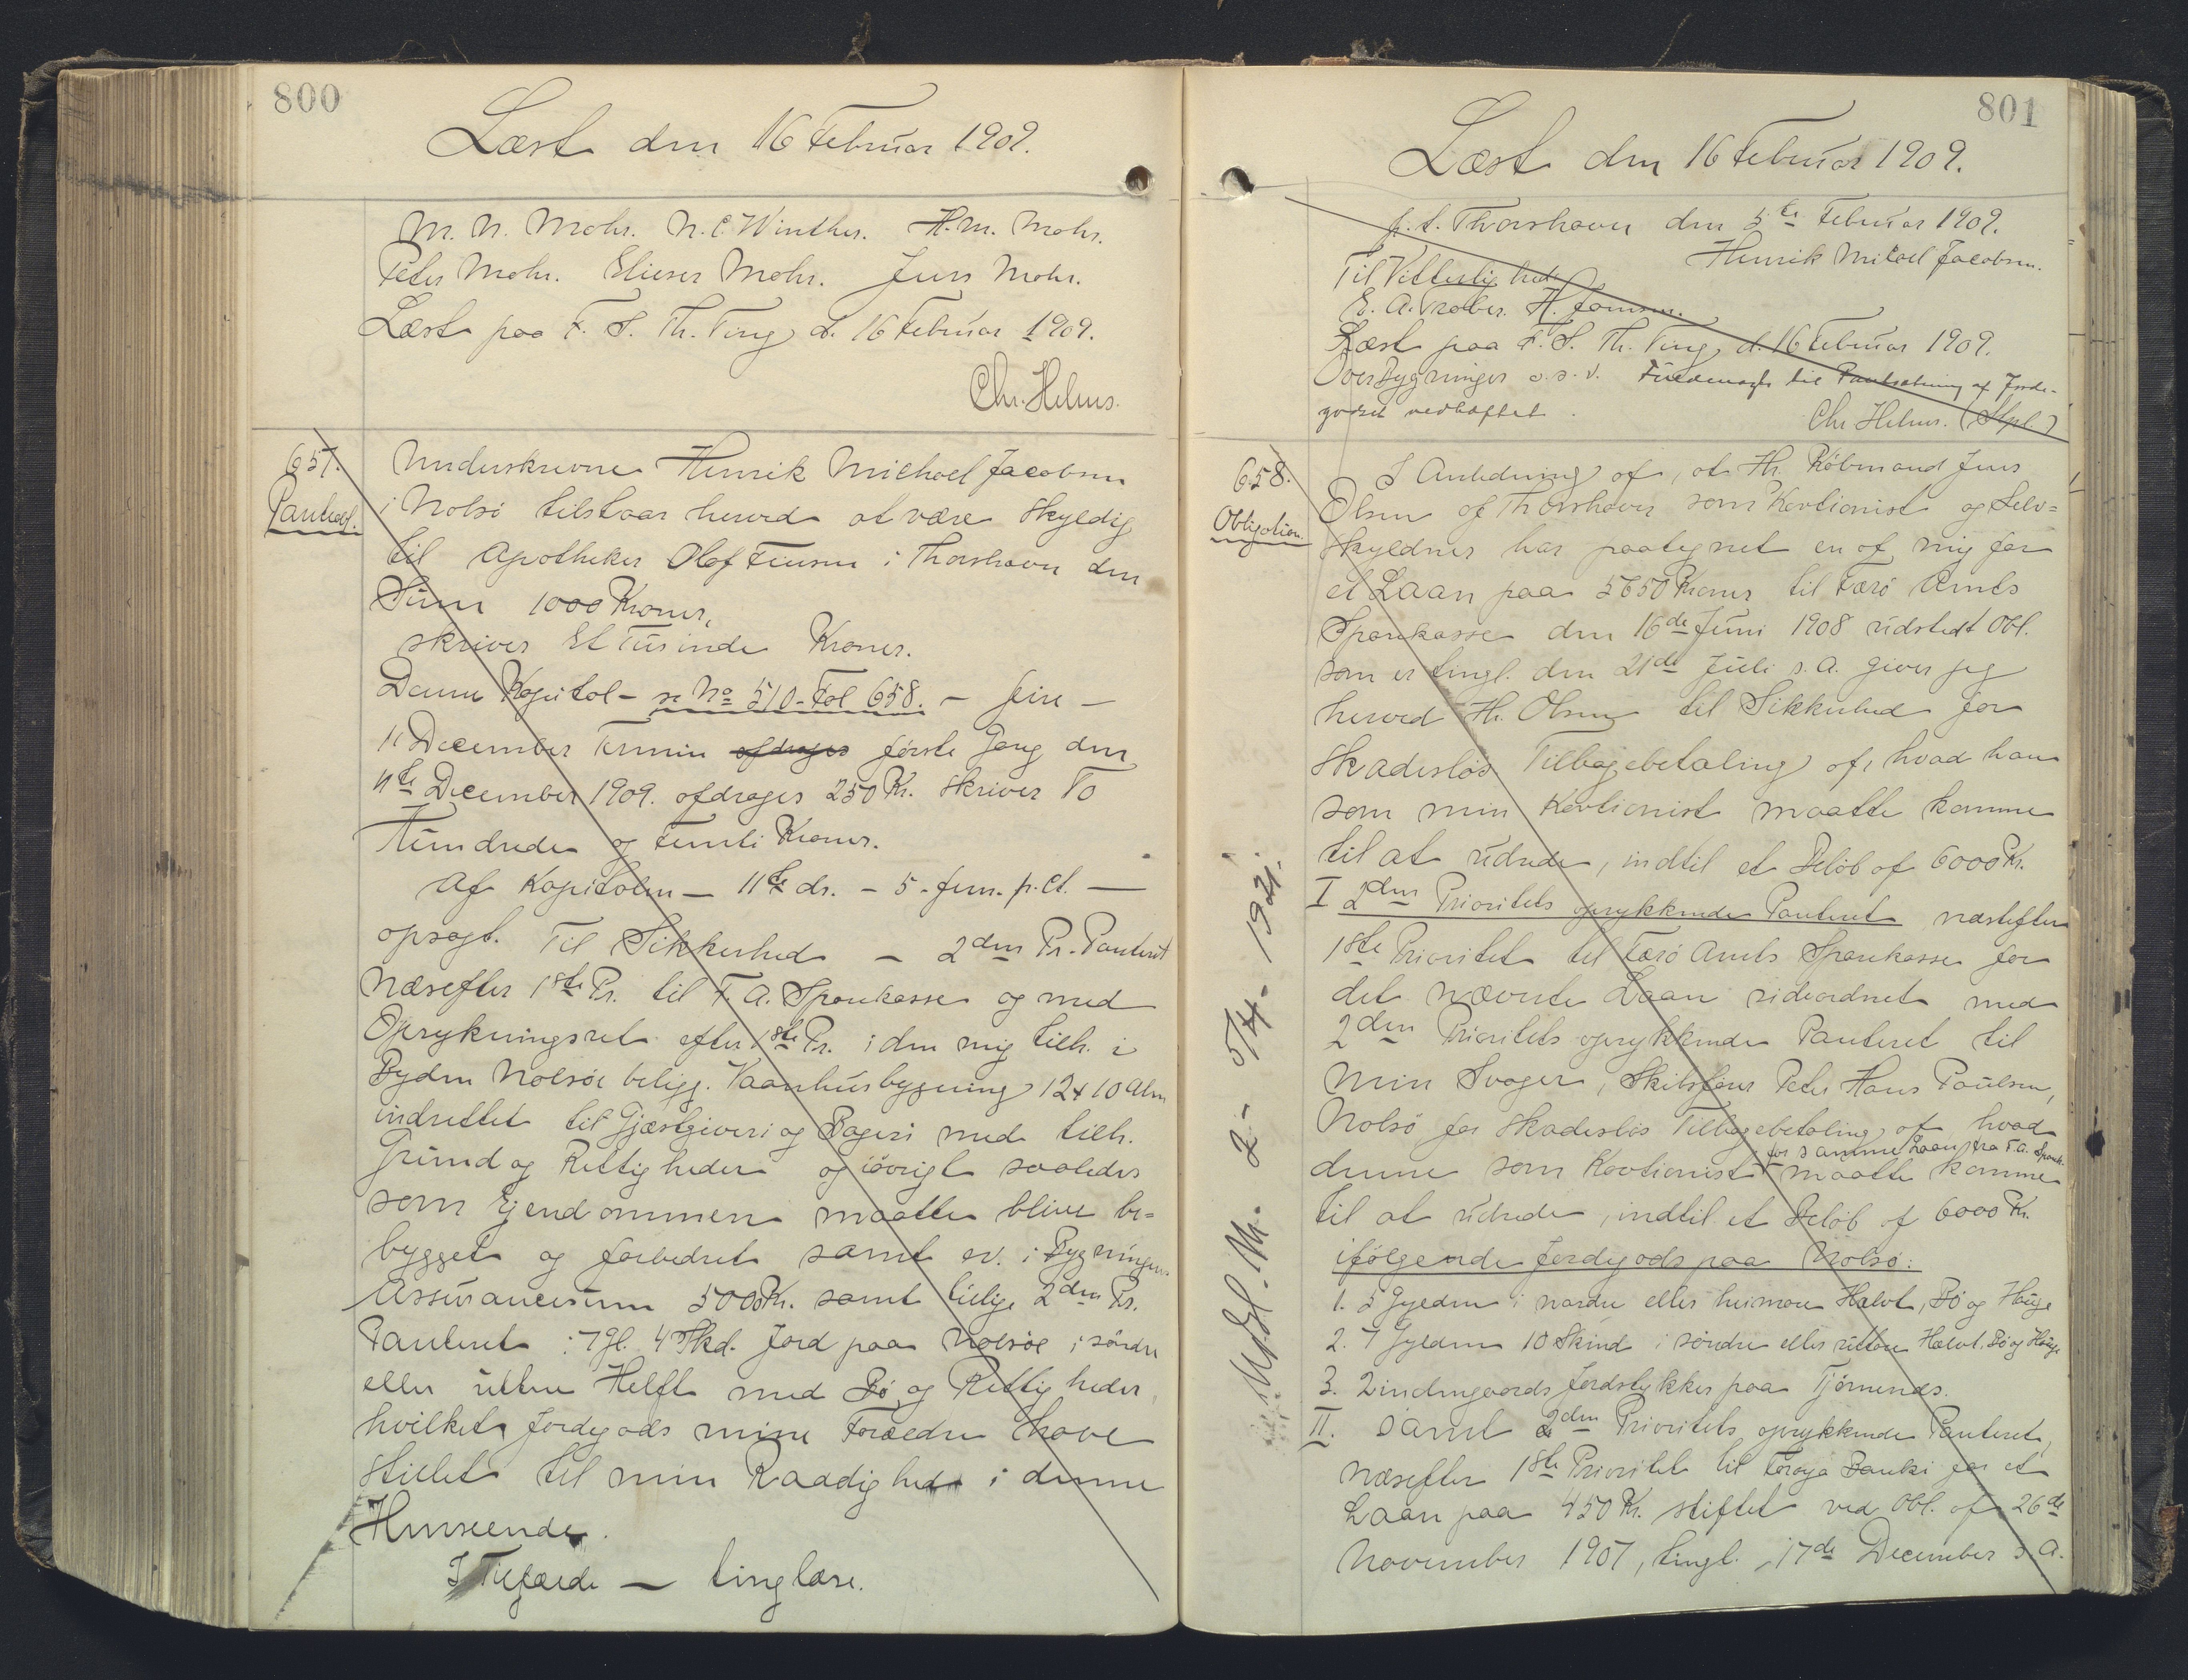 800
Læst den 16 Februar 1909.
M. N. Mohr. N. C. Winther. H. M. Mohr.
Peter Mohr. Elieser Mohr. Jens Mohr.
Læst paa F. S. Th. Ting d. 16 Februar 1909.
Chr. Helms.
657.
Panteobl.
Underskrevne Henrik Michael Jacobsen
i Nolsö tilstaar herved at være skyldig
til Apotheker Olaf Finsen i Thorshavn den
Sum 1000 Kroner,
skriver Et Tusinde Kroner.
Denne Kapital - se No 510 - Fol 658. - fire -
11 December Termin afdrages første Gang den
11te December 1909. afdrages 250 Kr. skriver To
Hundrede og Femti Kroner.
Af Kapitalen - 11te ds. - 5 - fem. p. ct. -
opsagt. Til Sikkerhed - 2den Pr. Panteret
Næsefter 1ste Pr. til F. A. Sparekasse og med
Oprykningsret efter 1ste Pr. i den mig tilh. i
Bygden Nolsöe beligg. Vaanhusbygning 12 x 10 Alen
indrettet til Gjæstgiveri og Bageri med tilh.
Grund og Rettigheder og iövrigt saaledes
som Ejendommen maatte blive be-
bygget og forbedret samt ev. i Bygningens
Assurancesum 5000 Kr. samt tillige 2den Pr.
Panteret i 7 gl. 4 Skd. Jord paa Nolsöe i söndre
eller uttere Helft med Bö og Rettigheder,
hvilket Jordegods mine Forældre have
stillet til min Raadighed i denne
Henseende.
I Tilfælde - tinglæse.
801
Læst den 16 Februar 1909.
p. t. Thorshavn den 5te Februar 1909.
Henrik Mikael Jacobsen.
Til Vitterlighed:
E. A. H. Joensen.
Læst paa F. S. Th. Ting, d. 16 Februar 1909.
Over Bygninger o. s. v. Fuldmagt til Pantsætning af Jorde-
godset vedhæftet.
Chr Helms. (Stpl.)
658.
Obligation.
I Anledning af, at Hr. Köbmand Jens
Olsen af Thorshavn som Kavtionist og Selv=
skyldner har paategnet en af mig for
et Laan paa 5650 Kroner til Færö Amts
Sparekasse den 16de Juni 1908 udstedt Obl.
som er tingl. den 21de Juli s. A. giver jeg
herved Hr. Olsen til Sikkerhed for
skadeslös Tilbagebetaling af, hvad han
som min Kavtionist maatte komme
til at udrede, indtil et Belöb af 6000 Kr.
I 2den Prioritets oprykkende Panteret næstefter
1ste Prioritet til Færö Amts Sparekasse for
det nævnte Laan sideordnet med
2den Prioritets oprykkende Panteret til
min Svoger, Skibsförer Peter Hans Poulsen,
Nolsö for skadeslös Tilbagebetaling af hvad
for samme Laan fra F. A. Spark.
denne som Kavtionist maatte komme
til at udrede, indtil et Belöb af 6000 Kr.
i fölgende Jordegods paa Nolsö:
1. 5 Gylden i nordre eller heimare Halvt, Bö og Hauge
2. 7 Gylden 10 Skind i söndre eller uttare Halvt. Bö og Hauge
3. 2 indengaards Jordstykker paa Tjörnunes.
II. Samt 2den Prioritets oprykkende Panteret,
næsefter 1ste Prioritet til Föroya Banki for et
Laan paa 450 Kr. stiftet ved Obl. af 26de
November 1907, tingl. 17de December s. A.